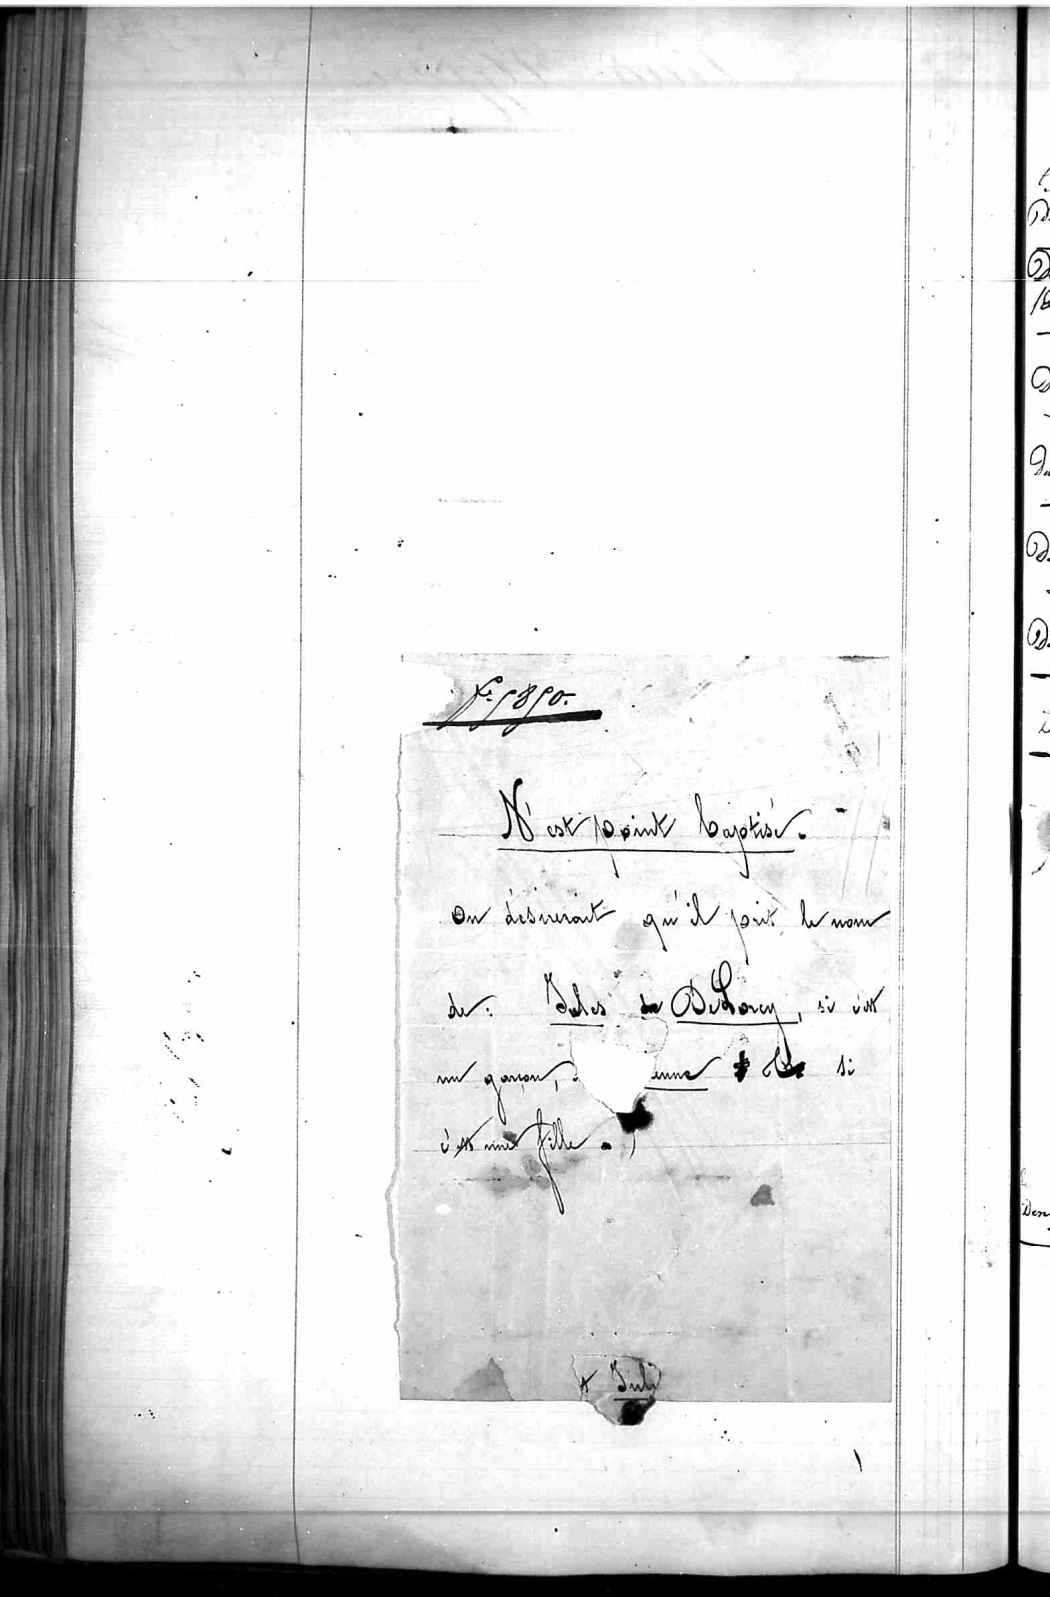 N° 9890.
N'est point baptisé.
On désirerait qu'il prit le nom
de: Jules de DeLorey, si c'est
un garçon, enne si
c'est une fille.
Juli